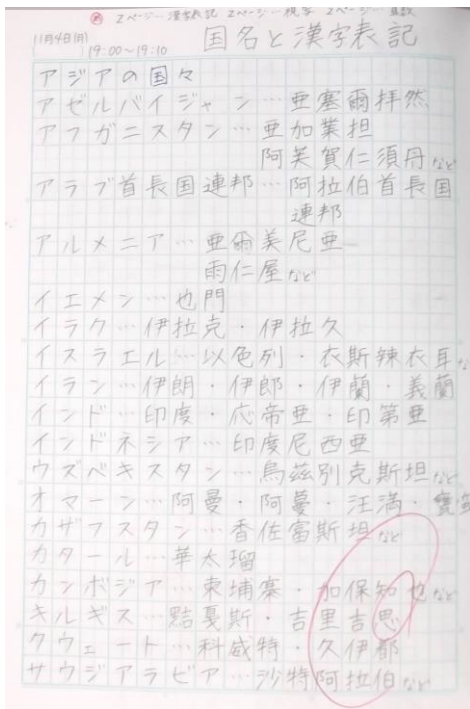 2ページ 漢字表記 2ページ 2ページ
11月4日(月)
19:00〜19:10
国名と漢字表記
アジアの国々
アゼルバイジャン…亜塞爾拝然
アフガニスタン…亜加業担
阿芙賀仁須丹など
アラブ首長国連邦…阿拉伯首長国
連邦
アルメニア…亜爾美尼亜
雨仁屋など
イエメン…也門
イラク…伊拉克・伊拉久
イスラエル…以色列・衣斯辣衣耳
イラン…伊朗・伊郎・伊蘭・義蘭
インド…印度・応帝亜・印第亜
インドネシア…印度尼西亜
ウズベキスタン…烏茲別克斯坦など
オマーン…阿曼・阿蔓・汪満・
カザフスタン…香佐富斯坦など
カタール…華太瑠
カンボジア…柬埔寨・加保知也など
キルギス…黠戛斯・吉里吉思
クウェート…科威特・久伊都
サウジアラビア…沙特阿拉伯など